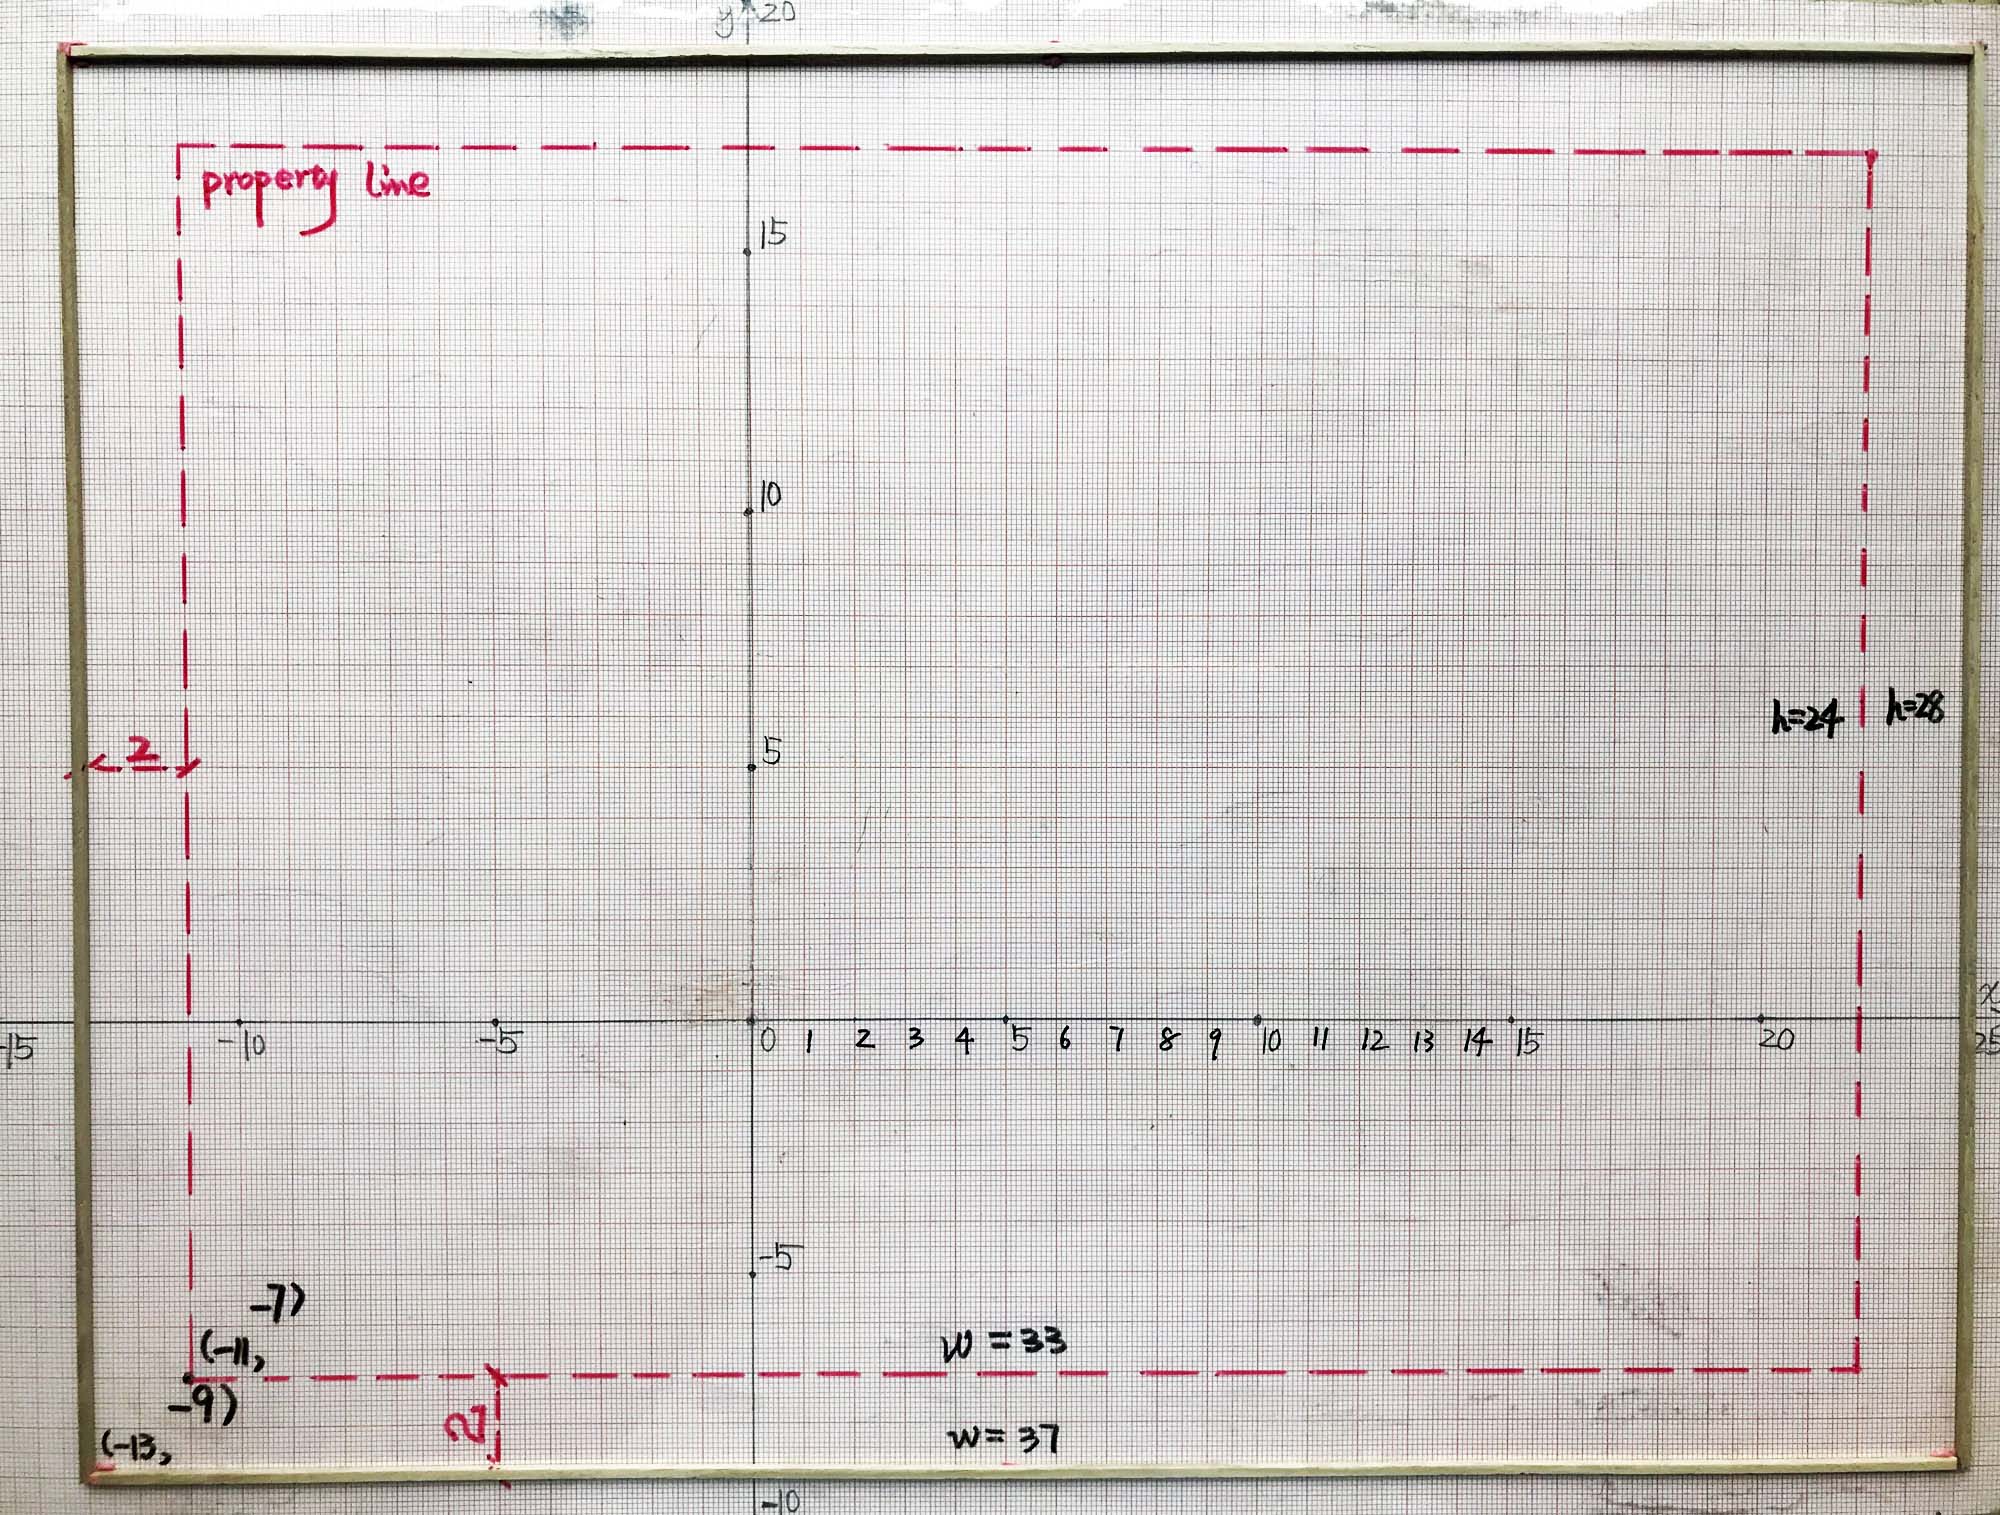 y 20
property line
15
10
h=24 h=28
5
2
x
-15 -10 -5 0 1 2 3 4 5 6 7 8 9 10 11 12 13 14 15 20 25
-5
-7)
(-11,
w = 33
-9)
2
(-13,
w = 37
-10